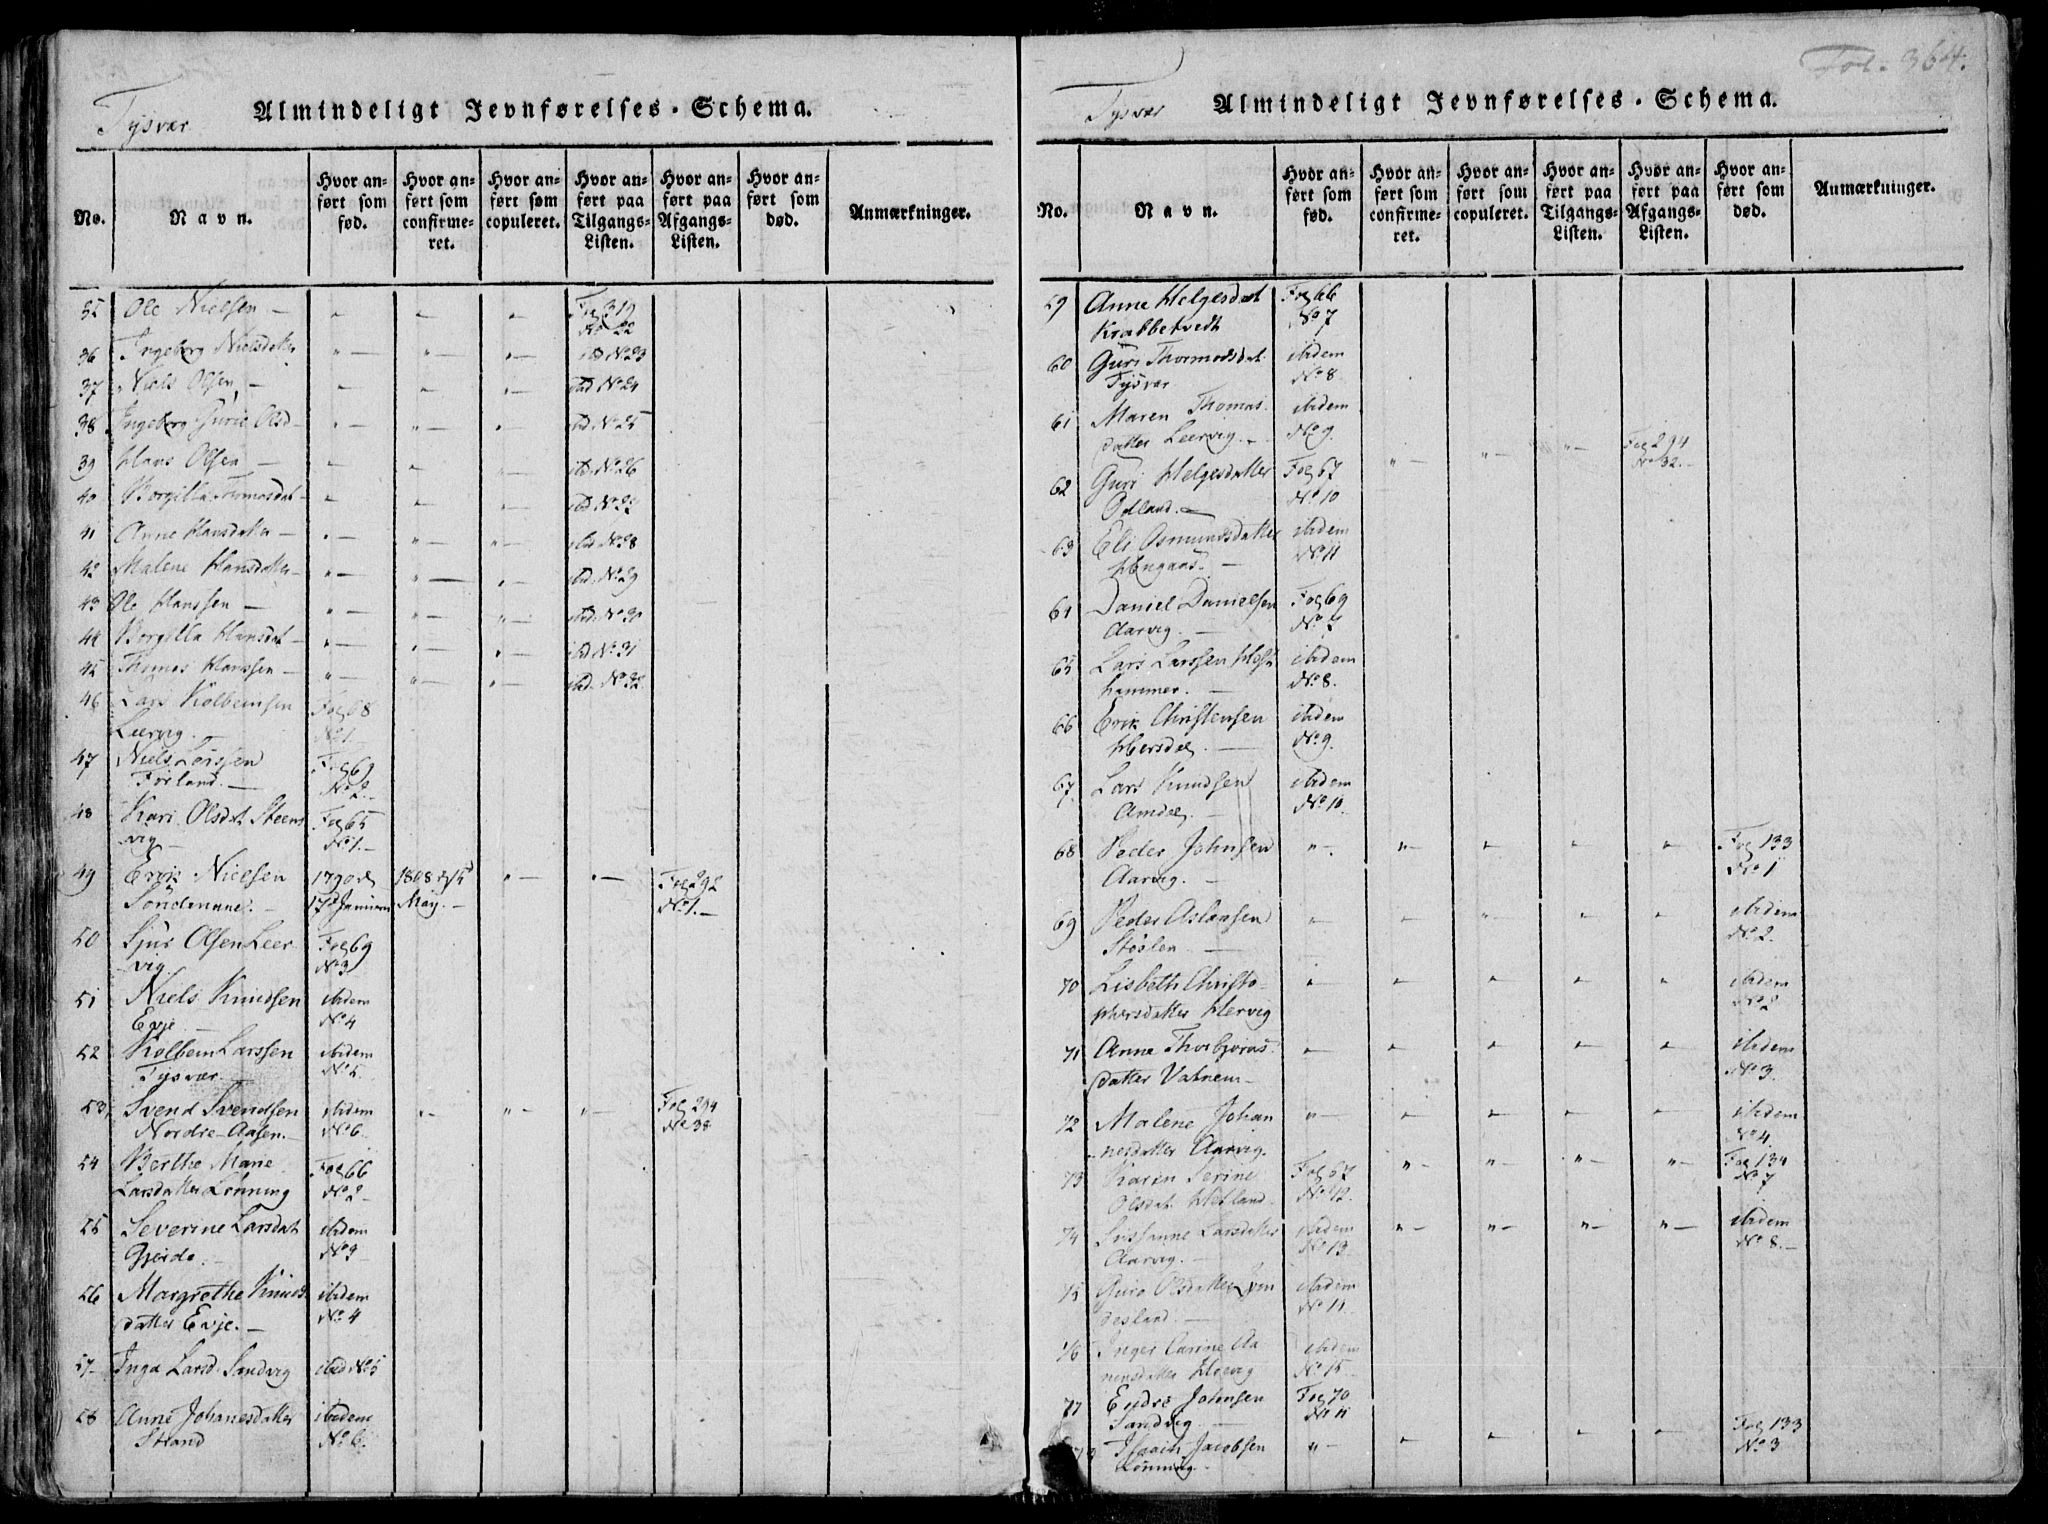 Tysvær
Almindeligt Jevnførelses-Schema.
No. Navn. Hvor anført som fød. Hvor anført som confirmeret. Hvor anført som copuleret. Hvor anført paa Tilgangs-Listen. Hvor anført paa Afgangs-Listen. Hvor anført som død. Anmærkninger.
35 Ole Nielsen — " " " Fol 319
No 22
36 Ingeborg Nielsdatter " — " — " — ibd No 23
37 Niels Olsen — " — " — " — ibid No 24
38 Ingeborg Gurie Olsd — " — " — " — ibid No 25
39 Hans Olsen — " — " — " — ibd. No 26
40 Borgilla Thomasdat — " — " — " — ibd No
41 Anne Hansdatter — " — " — " — ibid No 28
42 Malene Hansdatter — " — " — " — ibid. No 29
43 Ole Hanssen — " — " — " — ibid. No 30
44 Borgilla Hansdat — " — " — " — ibid No 31
45 Thomas Hanssen — " — " — " — ibid. No 32
46 Lars Kolbeinsen Fol 68
Leervig. — No 1
47 Niels Larssen Fol 69
Førland. — No 2. —
48 Kari Olsdat Steens Fol 65
vig — No 1. —
49 Erik Nielsen 1790 d 1808 d 15 " — " — Fol 292
Søndenaae. — 17 Januari May. — No 1. —
50 Sjur Olsen Leer Fol 69
vig. No 3
51 Niels Knudsen ibidem
Evje — No 4
52 Kolbein Larssen ibidem
Tysvær. — No 5.
53 Svend Svendsen ibidem " — " — " — Fol 294
Nordre-Aasen. — No 6. No 38
54 Berthe Marie Fol 66
Larsdatter Lønning No 2 —
55 Severine Larsdat ibidem
Gjerde. — No 3 —
56 Margrethe Knuds ibidem
datter Evje. — No 4
57 Inga Larsd. Sandvig ibid No 5
58 Anne Johanesdatter ibidem
Strand No 6.
Fol. 364.
Tysvær
Almindeligt Jevnførelses-Schema.
No. Navn. Hvor anført som fød. Hvor anført som confirmeret. Hvor anført som copuleret. Hvor anført paa Tilgangs-Listen. Hvor anført paa Afgangs-Listen. Hvor anført som død. Anmærkninger.
59 Anne Helgesdat Fol 66
Krabbetvedt No 7
60 Guri Thormodsdat ibidem
Tysvær No 8
61 Maren Thomas ibidem
datter Leervig. — No 9. " — " — " — Fol 294
No 32. —
62 Guri Helgesdatter Fol 67
Odland. — No 10
63 Eli Osmundsdatter ibidem
Høngaas. — No 11
64 Daniel Danielsen Fol 69
Aarvig. — No 7
65 Lars Larssen Hest ibidem
hammer. — No 8.
66 Erik Christensen ibidem
Hersdal. — No 9.
67 Lars Knudsen ibidem
Amdal. — No 10.
68 Peder Johnsen " " " " " Fol 133
Aarvig. — No 1
69 Peder Aslaksen " " " " " ibidem
Støslen — No 2.
70 Lisbeth Christo " " " " " ibidem
phersdatter Hervig No 2
71 Anne Thorbjørns " " " " " ibidem
datter Vatnem — No 3.
72 Malene Johan " " " " " ibidem
nesdatter Aarvig. No 4.
73 Karen Serine Fol 67 " — " — " — " — Fol 134
Olsdat. Hetland. No 12. No 7
74 Susanne Larsdatter ibidem " — " — " — " — ibidem
Aarvig. — No 13. No 8. —
75 Guro Olsdatter ibidem
desland. — No 14.
76 Inger Carine Aa ibidem
nensdatter Hervig No 15
77 Endre Johnsen Fol 70
Sandvig. — No 11
Isaach Jacobsen " — " " " " Fol 133
Lønning. No 3